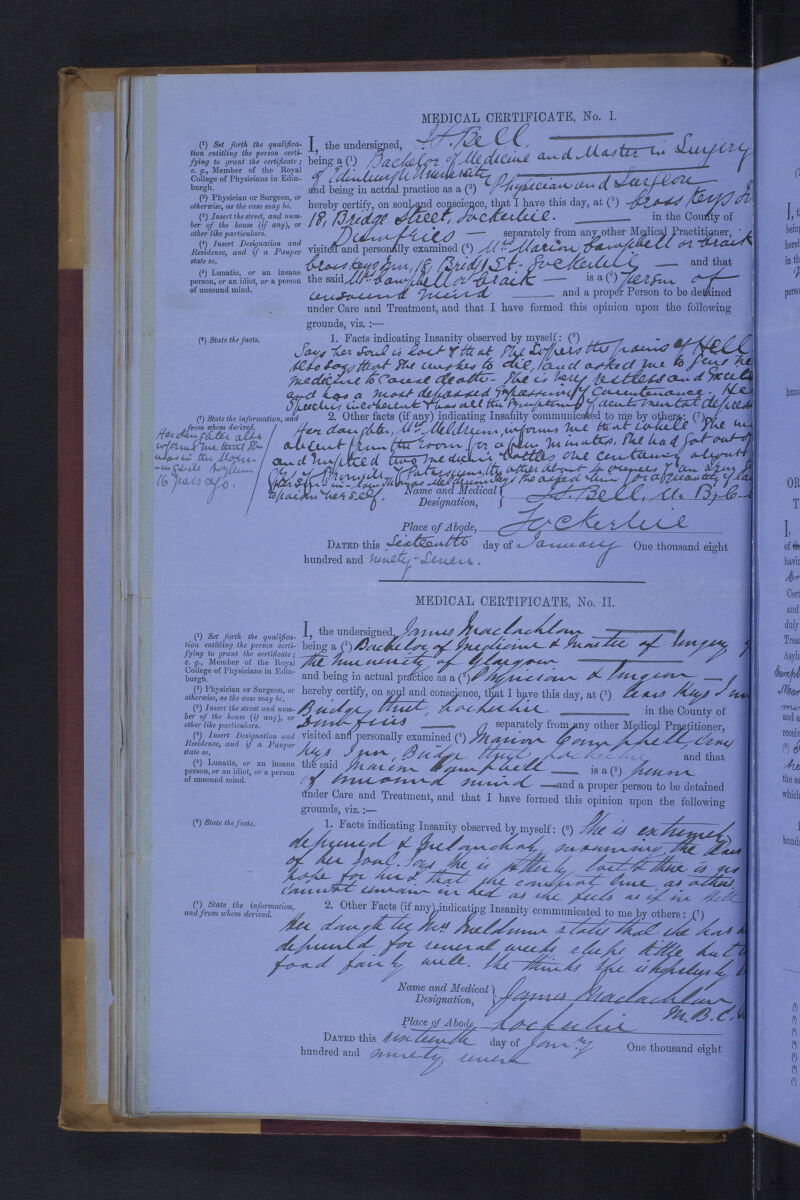 MEDICAL CERTIFICATE, No. I.
(¹) Set forth the qualifica-
tion entitling the person certi-
fying to grant the certificate;
e. g., Member of the Royal
College of Physicians in Edin-
burgh.
(²) Physician or Surgeon, or
otherwise, as the case may be.
(³) Insert the street, and num-
ber of the house (if any), or
other like particulars.
(⁴) Insert Designation and
Residence, and if a Pauper
state so.
(⁵) Lunatic, or an insane
person, or an idiot, or a person
of unsound mind.
I, the undersigned, Bell.
being a (¹) Bachelor of Medicine and Master in Surgery
of Edinburgh University
and being in actual practice as a (²) Physician and Surgeon
hereby certify, on soul and conscience, that I have this day, at (³) Cross Keys
18, Bridge Street, Lockerbie. in the County of
Dumfries — separately from any other Medical Practitioner,
visited and personally examined (⁴) Mrs Marion Campbell or
Cross Keys Inn, 18, Bridge St. Lockerbie — and that
the said Mrs Campbell or — is a (⁵) Person of
unsound mind and a proper Person to be detained
under Care and Treatment, and that I have formed this opinion upon the following
grounds, viz. :—
(⁶) State the facts.
1. Facts indicating Insanity observed by myself: (⁶)
Says her Soul is lost & that she suffers the pains of Hell
also says that she wishes to die, and asked me to give her
medicine to cause death. She is very restless and
and has a most depressed expression of Countenance.
Speech is incoherent & has all the Symptoms of mental
(⁷) State the information, and
from whom derived.
2. Other facts (if any) indicating Insanity communicated to me by others: (⁷)
Her daughter, Mrs Meldrum, informs me that while she
absent from the room for a few minutes. She had got out of
and emptied two medicine bottles one containing about
of the other about 4 ounces of an
Her son-in-law Thomas Meldrum says she asked him for a quantity of
to poison herself.
Her daughter also
informs me that she
was in the
Asylum
16 years ago.
Name and Medical
Designation, Bell, M.B.
Place of Abode, Lockerbie
DATED this Sixteenth day of January One thousand eight
hundred and ninety-Seven.
MEDICAL CERTIFICATE, No. II.
(¹) Set forth the qualifica-
tion entitling the person certi-
fying to grant the certificate;
e. g., Member of the Royal
College of Physicians in Edin-
burgh.
(²) Physician or Surgeon, or
otherwise, as the case may be.
(³) Insert the street and num-
ber of the house (if any), or
other like particulars.
(⁴) Insert Designation and
Residence, and if a Pauper
state so.
(⁵) Lunatic, or an insane
person, or an idiot, or a person
of unsound mind.
I, the undersigned, James Maclachlan
being a (¹) Bachelor of Medicine & Master of Surgery
the University of Glasgow.
and being in actual practice as a (²) Physician & Surgeon —
hereby certify, on soul and conscience, that I have this day, at (³) Cross Keys Inn
Bridge Street, Lockerbie in the County of
Dumfries separately from any other Medical Practitioner,
visited and personally examined (⁴) Marion Campbell, Cross
Keys Inn, Bridge Street Lockerbie and that
the said Marion Campbell — is a (⁵) person
of unsound mind —and a proper person to be detained
under Care and Treatment, and that I have formed this opinion upon the following
grounds, viz. :—
(⁶) State the facts.
1. Facts indicating Insanity observed by myself: (⁶) She is extremely
depressed & melancholy, mourning the loss
of her soul. Says she is utterly lost & there is no
hope for her & that she cannot live as others.
Cannot remain in bed as she feels as if in Hell
(⁷) State the information,
and from whom derived.
2. Other Facts (if any) indicating Insanity communicated to me by others: (⁷)
Her daughter Mrs Meldrum states that she has
depressed for several weeks sleeps little but
food fairly well. She thinks she is hopelessly
Name and Medical
Designation, James Maclachlan
M.B.C.
Place of Abode Lockerbie
DATED this sixteenth day of Janry One thousand eight
hundred and ninety seven